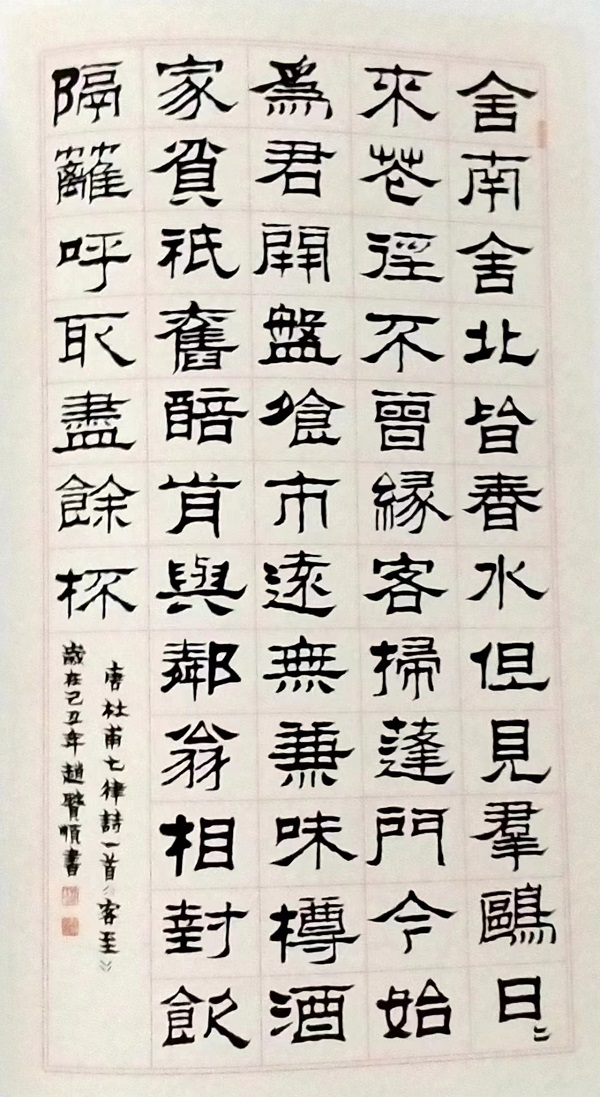 舍南舍北皆春水但見羣鷗日〻
來花徑不曾緣客掃蓬門今始
爲君開盤飧市遠無兼味樽酒
家貧祇舊醅肯與鄰翁相對飲
隔籬呼取盡餘杯
唐杜甫七律詩一首《客至》
歲在己丑年趙賢順書